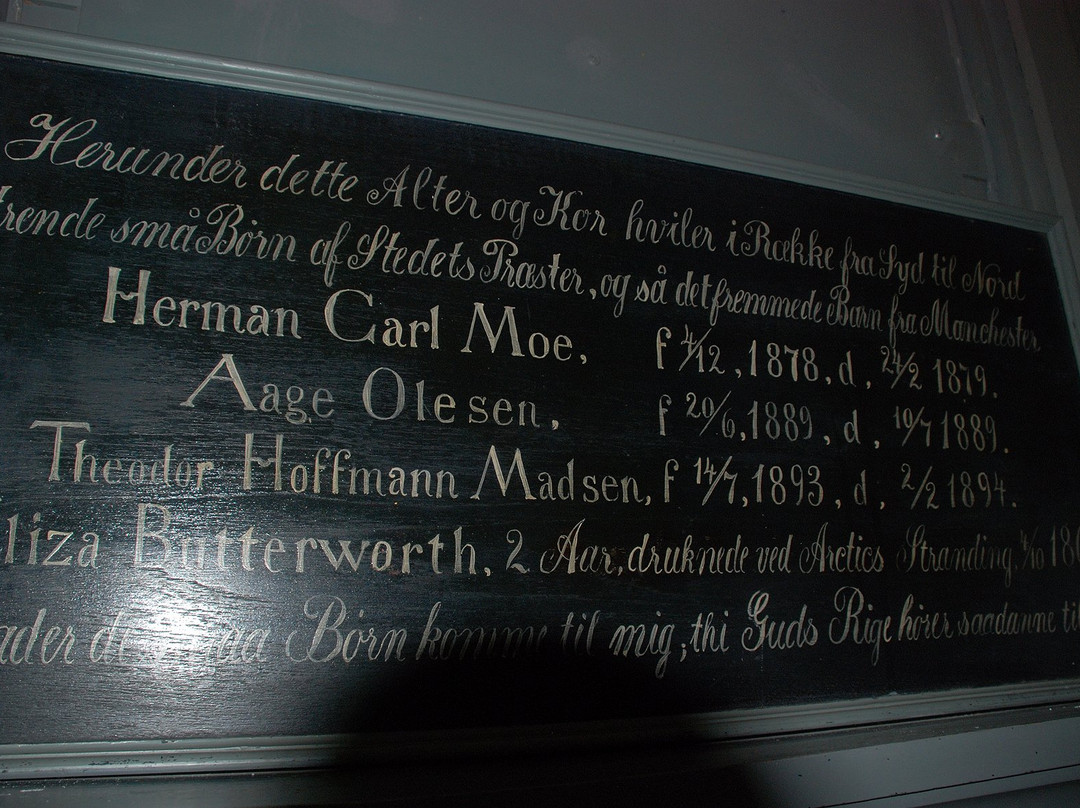 Herunder dette Alter og Kor hviler i Række fra Syd til Nord
trende små Børn af Stedets Præster, og så det fremmede Barn fra Manchester
Herman Carl Moe, f 4/12, 1878, d, 24/2 1879.
Aage Olesen, f 20/6, 1889, d, 19/7 1889.
Theodor Hoffmann Madsen, f 14/7, 1893, d, 2/2 1894.
liza Butterworth, 2 Aar, druknede ved Arctics Stranding,
ader Børn komme til mig, thi Guds Rige hører saadanne til